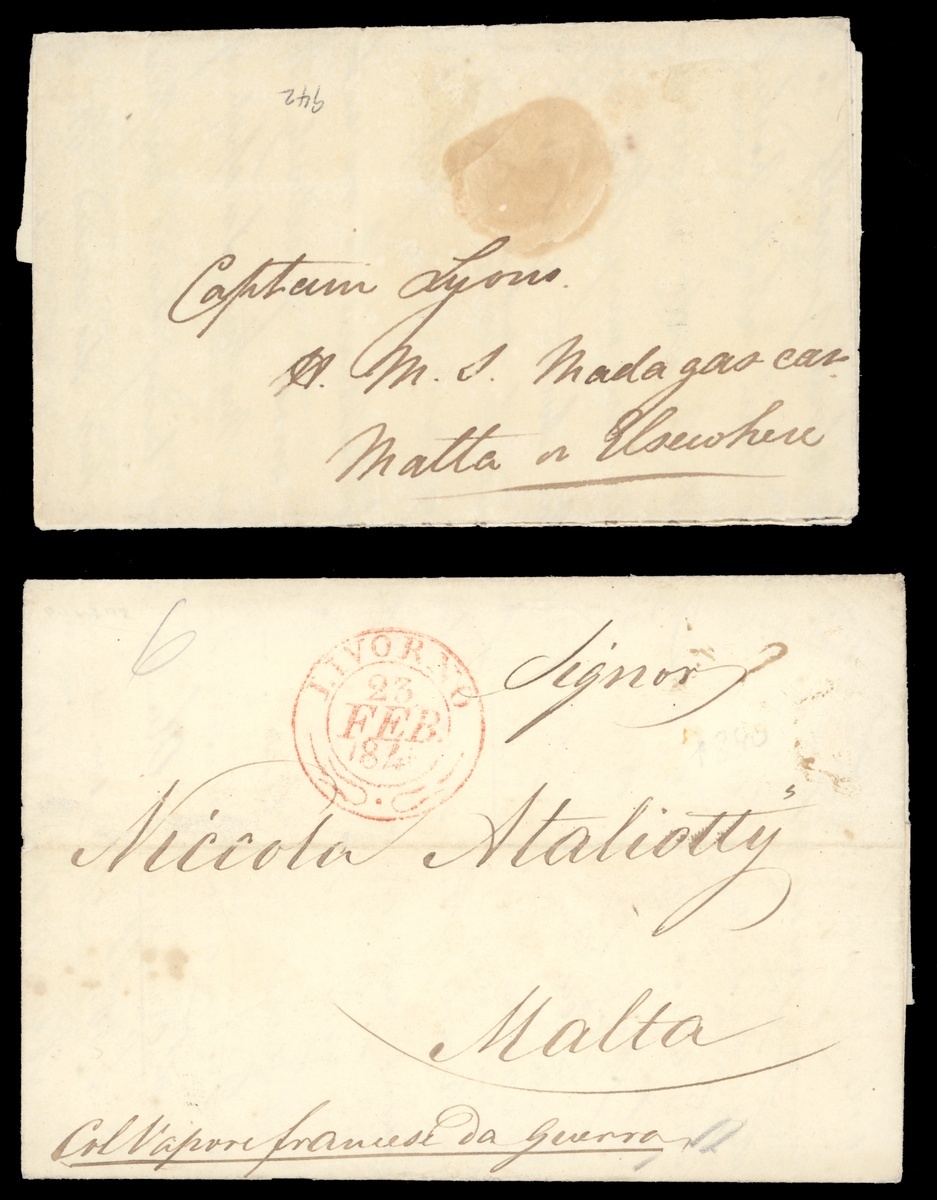 942
Captain Lyons.
H. M. S. Madagascar.
Malta or Elsewhere
6
LIVORNO
23
FEB.
184
Signor
Niccola
Malta
Col Vapore francese da Guerra